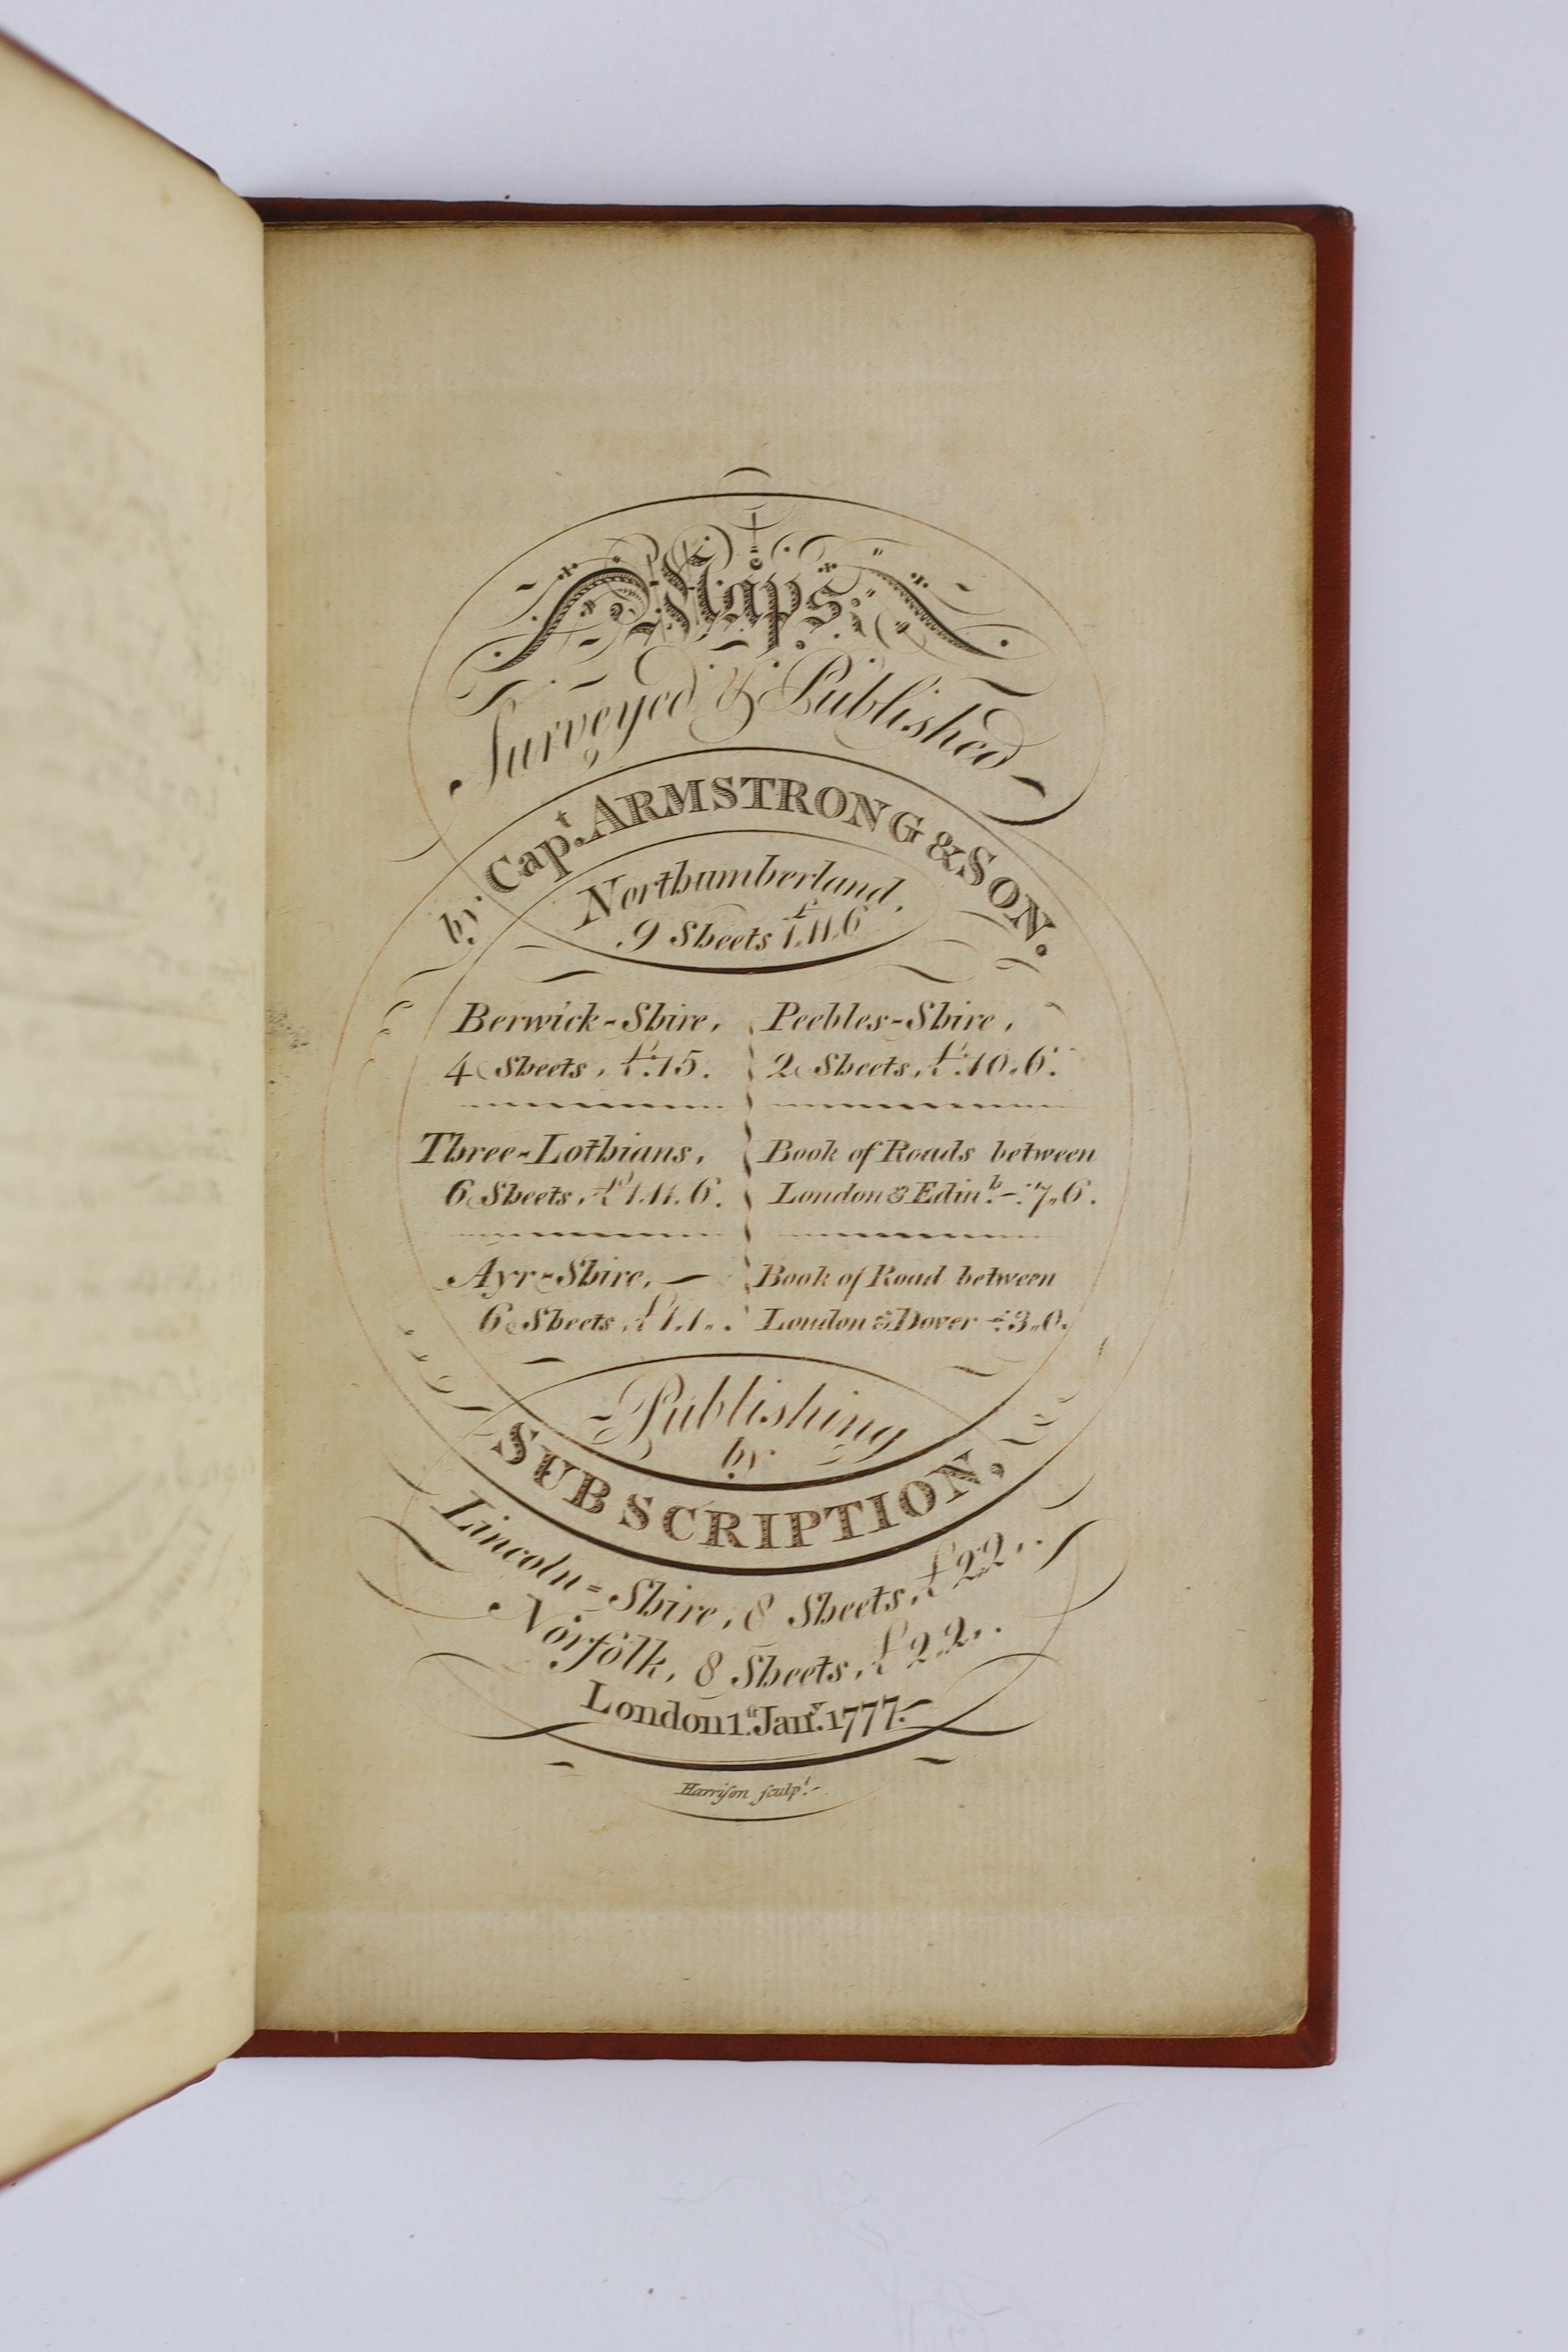 Maps
Surveyed & Published
by Capt. ARMSTRONG & SON.
Northumberland,
9 Sheets £1,,11,,6
Berwick-Shire,
4 Sheets, £:15.
Three-Lothians,
6 Sheets, £1.11.6.
Ayr-Shire,
6 Sheets, £1.1,,.
Peebles-Shire,
2 Sheets, £:10,,6.
Book of Roads between
London & Edinh. -:7,,6.
Book of Road between
London & Dover -:3,,0.
Publishing
by
SUBSCRIPTION,
Lincoln=Shire, 8 Sheets, £2,,2,,.
Norfolk, 8 Sheets, £2,,2,,.
London 1st. Jany. 1777.
Harriſon ſculpt.